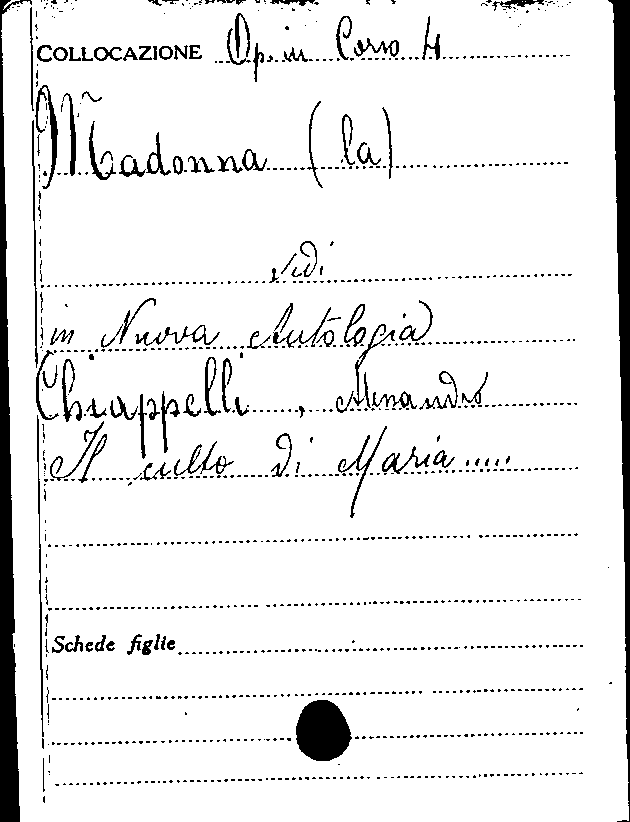 COLLOCAZIONE Op. in Corso 4
Madonna (la)
vedi
in Nuova Antologia
Chiappelli, Alessandro
Il culto di Maria.....
Schede figlie